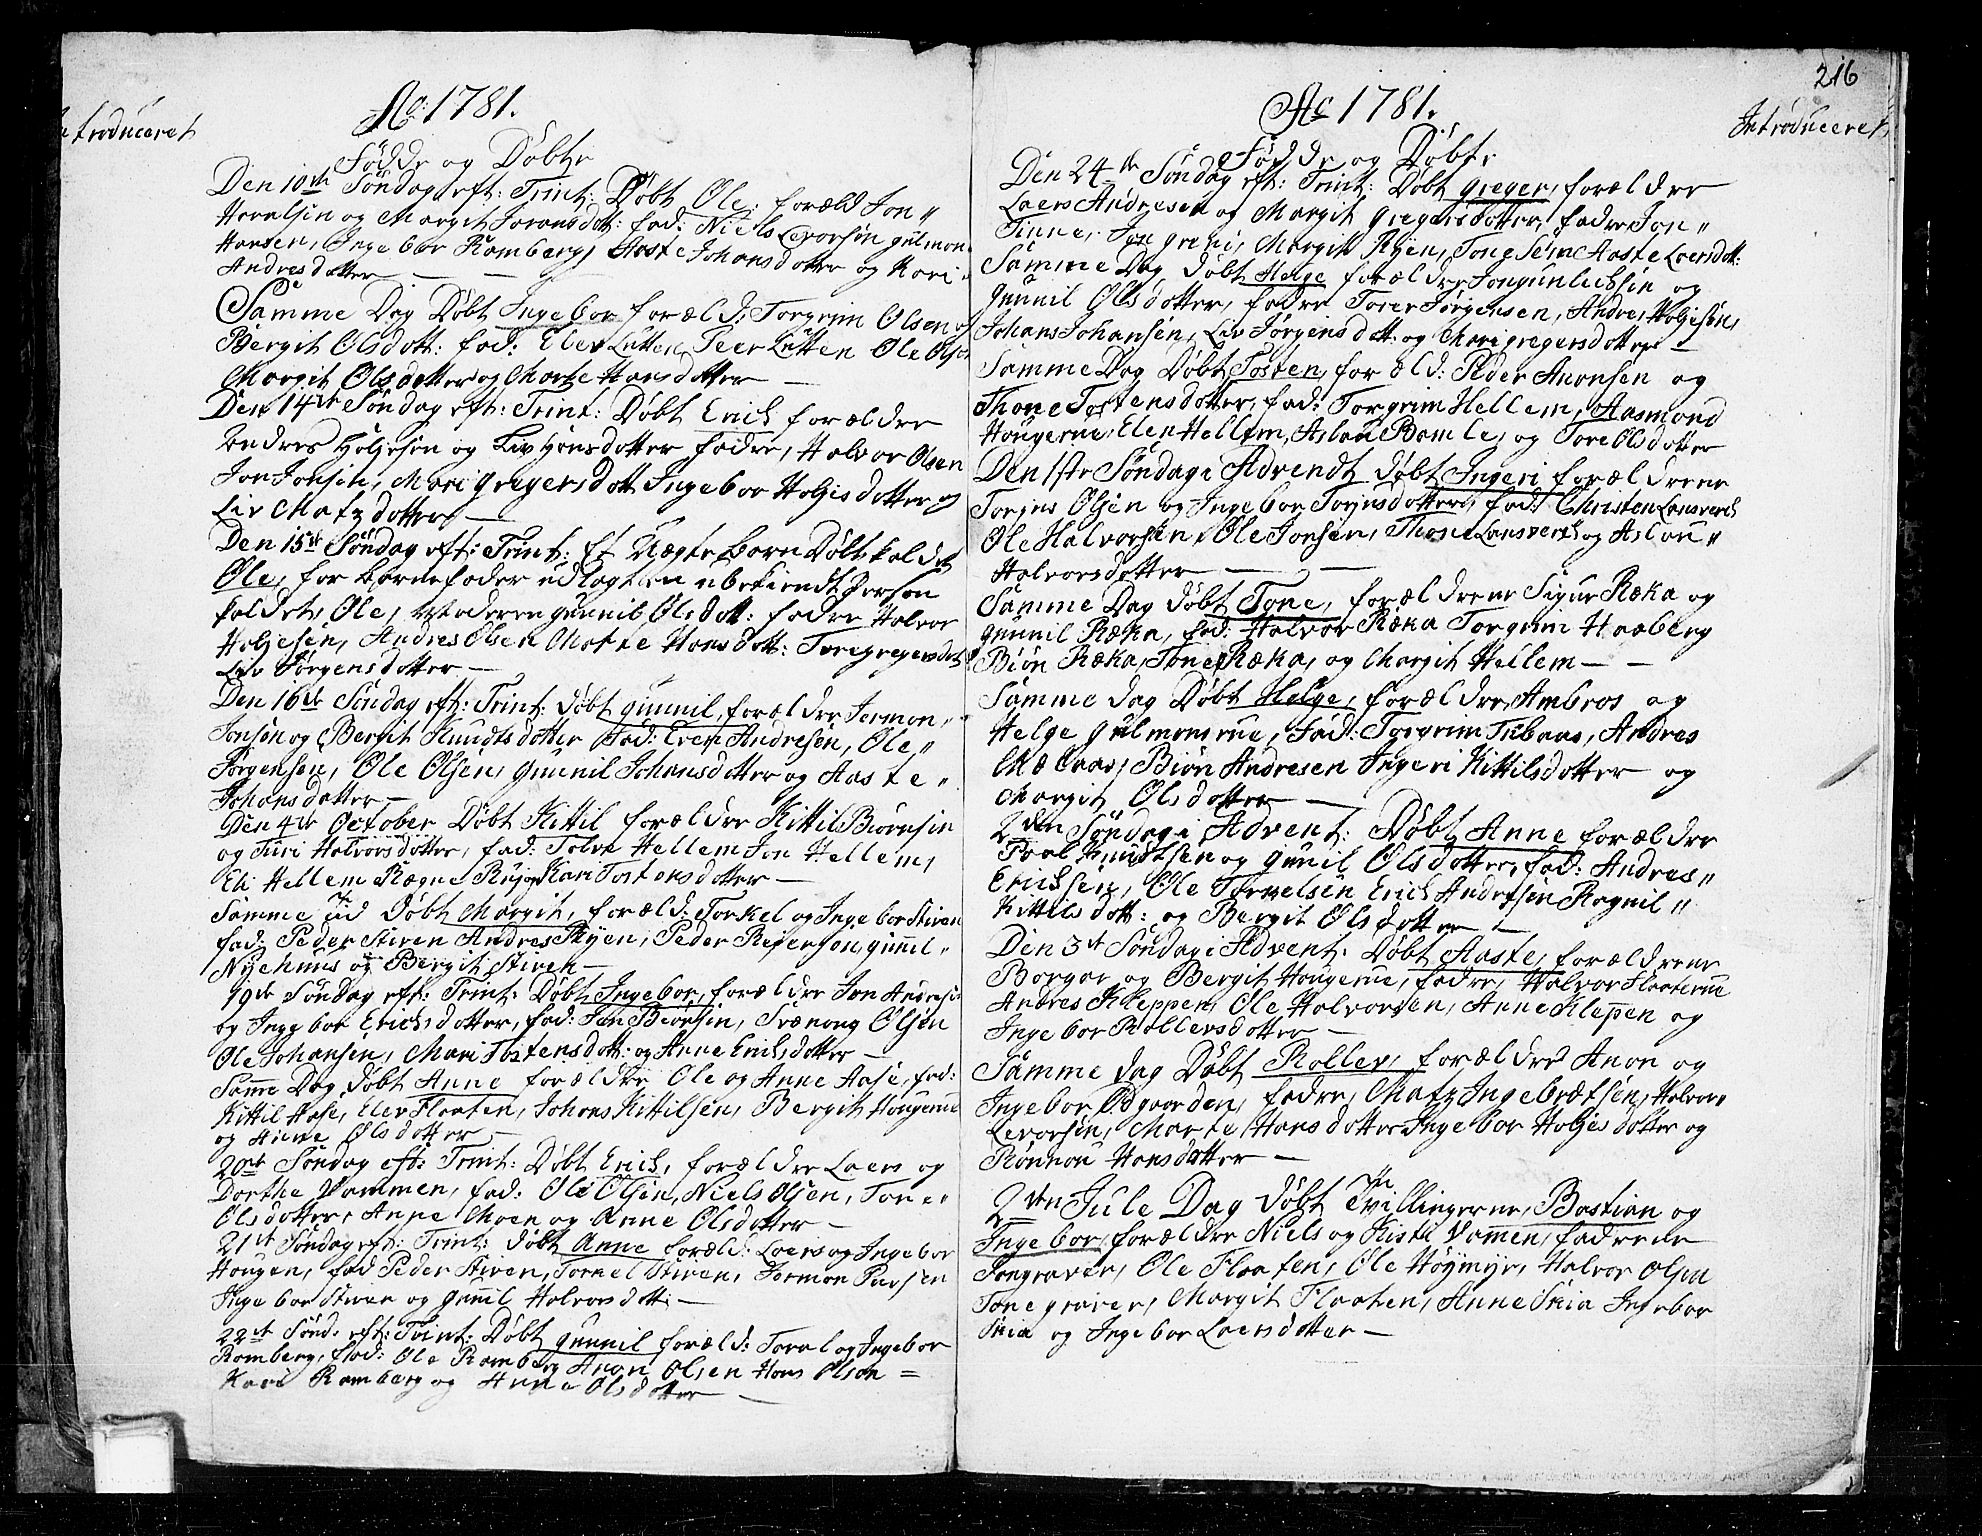 Ao: 1781.
Introduceret
Fødde og Døbte
Den 10de Søndag eft: Trint: Døbt Ole: foræld Jon
og Margit fad: Niels Levorsen gulmon
Hansen, Ingebor Ramberg, Aaste Johansdotter og Kari
Andresdotter —
Samme Dag Døbt Ingebor foræld: Torgrim Olsen og
Bergit Olsdott: fad: Elev Lutten, Peer Lutten Ole Olsen
Margit Olsdotter og Marte Hansdotter —
Den 14de Søndag eft: Trint: Døbt Erich forældre
Andres Holjesen og Liv Hansdotter fadre, Halvor Olsen
Jon Jonsen, Mari gregersdott Ingebor Holjesdotter og
Liv Matzdotter —
Den 15de Søndag eft: Trint: Et Uægte Barn Døbt kaldet
Ole, for barnefader udlagt en ubekiendt Person
kaldet, Ole, Moderen gunnil Olsdott: fadre Halvor
Holjesen, Andres Olsen Marte Hansdott: Tore gregersdot
Liv Jørgensdotter —
Den 16de Søndag eft: Trint: Døbt gunnil, forældre Jermon
Jonsen og Bergit Knudtsdotter fad: Even Andresen, Ole
Jørgensen, Ole Olsen, gunnil Johansdotter og Aaste
Johansdotter —
Den 4de October Døbt Kittil forældre Kittil Biørnsen
og Turi Halvorsdotter, fad: Tolve Hellem Jon Hellem,
Eli Hellem Ragne og Kari Tostensdotter —
Samme tid Døbt Margit, foræld: Torkel og Ingebor Stiven
fad: Peder Stiven Andres Ryen, Peder gunnil
Nyehuus og Bergit Stiven —
19de Søndag eft: Trint: Døbt Ingebor, forældre Jon Andresen
og Ingebor Erichsdotter, fad: Jon Biørnsen, Svænong Olsen
Ole Johansen, Mari Tostensdott: og Anne Erichsdotter —
Samme Dag døbt Anne forældre Ole og Anne Aase, fad:
Kittil Aase, Elev Flaaten, Johans Kittilsen, Bergit Hougerue
og Anne Olsdotter —
20de Søndag eft: Trint: Døbt Erich, forældre Laers og
Dorthe Vammen, fad: Ole Olsen, Niels Olsen, Tore
Olsdotter, Anne Moen og Anne Olsdotter —
21de Søndag eft: Trint: døbt Anne foræld: Laers og Ingebor
Hougen, fad Peder Stiven, Torkel Stiven, Jermon
Ingebor Stiven og gunnil Halvorsdott: —
22de Sønd: eft: Trint: Døbt gunnil foræld: Toral og Ingebor
Ramberg, fad: Ole Ramberg Anon Olsen Hans Olsen
Kari Ramberg og Anne Olsdotter —
216
Ao 1781.
Introduceret
Fødde og Døbte
Den 24de Søndag eft: Trint: Døbt greger, forældre
Laers Andresen og Margit gregersdotter, fadre Jon
Tinne, Jon Margit Ryen, Aaste Laersdott:
Samme Dag døbt Helge forældre Jon gunlechsen og
gunnil Olsdotter, fadre Torer Jørgensen, Andres Holjesen,
Johans Johansen, Liv Jørgensdott: og Mari gregersdotter —
Samme Dag Døbt Tosten, foræld: Peder Anonsen og
Thone Tostensdotter, fad: Torgrim Hellem, Aasmond
Hougerue, Elen Hellem, Aslau Bamle, og Tore Olsdotter
Den 1ste Søndag i Advendt døbt Ingeri forældrene
Torjus Olsen og Ingebor Torjusdotter, fad: Christen Lonsverch
Ole Halvorsen, Ole Jonsen, Thone Lonsverch og Aslou
Halvorsdotter —
Samme Dag døbt Tone, forældrene Sigur Ræka og
gunnil Ræka, fad: Halvor Ræka Torgrim Haaberg
Biøn Ræka, Tone Ræka, og Margit Hellem —
Samme dag Døbt Helge, forældre, Ambros og
Helge gulmonsrue, fad: Torgrim Andres
Biøn Andresen Ingeri Kittilsdotter og
Margit Olsdotter —
2den Søndag i Advent: Døbt Anne forældre
Paal Knudtsen og gunil Olsdotter, fad: Andres
Erichsen, Ole Erich Andresen Ragnil
Kittilsdott: og Bergit Olsdotter —
Den 3de Søndag i Advent: Døbt Aaste, forældrene
Borgar og Bergit Hougerue, fadre, Halvor Flaaterue
Andres Kleppen, Ole Halvorsen, Anne Klepen og
Ingebor Rollevsdotter —
Samme dag Døbt Rollev, forældre Anon og
Ingebor Ødgaarden, fadre, Matz Ingebrætsen, Halvor
Levorsen, Marte Hansdotter Ingebor Holjesdotter og
Rønnou Hansdotter —
2den Jule Dag døbt Tvillingerne, Bastian og
Ingebor, forældre Niels og Kisti Vamen, fadrene
Jon graver, Ole Flaaten, Ole Høymyr, Halvor Olsen
Tone graver, Margit Flaaten, Anne Skia Ingebor
Skia og Ingebor Laersdotter —